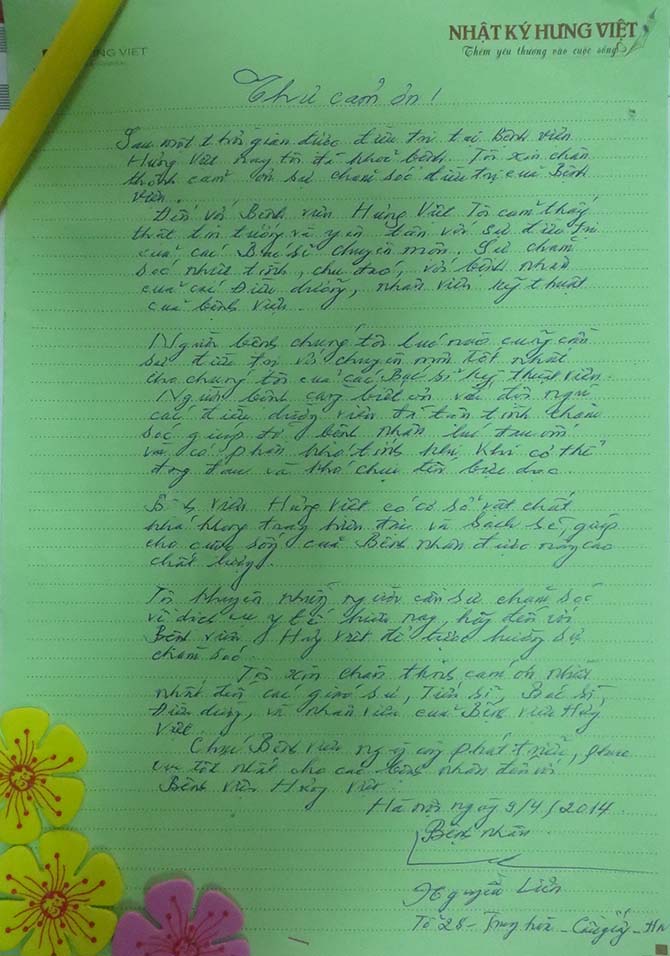 NHẬT KÝ HƯNG VIỆT
Thêm yêu thương vào cuộc sống
HƯNG VIET
Thư cảm ơn!
Sau một thời gian được điều trị tại Bệnh viện
Hưng Việt nay tôi đã khỏi bệnh. Tôi xin chân
thành cảm ơn sự chăm sóc điều trị của Bệnh
viện.
Đến với Bệnh viện Hưng Việt Tôi cảm thấy
thật tin tưởng và yên tâm với sự điều trị
của các Bác sĩ chuyên môn. Sự chăm
sóc nhiệt tình, chu đáo, với bệnh nhân
của các Điều dưỡng, nhân viên kỹ thuật
của bệnh viện.
Người bệnh chúng tôi lúc nào cũng cần
sự điều trị với chuyên môn tốt nhất
cho chúng tôi của các Bác sĩ kỹ thuật viên.
Người bệnh càng biết ơn với đội ngũ
các điều dưỡng viên đã tận tình chăm
sóc giúp đỡ bệnh nhân lúc đau ốm
và có phần khó tính khi cơ thể
đang đau và khó chịu
Bệnh viện Hưng Việt có cơ sở vật chất
khá khang trang hiện đại và sạch sẽ giúp
cho cuộc sống của Bệnh nhân được nâng cao
chất lượng.
Tôi khuyên những người cần sự chăm sóc
về dịch vụ y tế hiện nay, hãy đến với
Bệnh viện Hưng Việt để được hưởng sự
chăm sóc
Tôi xin chân thành cảm ơn nhiều
nhất đến các giáo sư, Tiến sĩ, Bác sĩ,
Điều dưỡng, và nhân viên của Bệnh viện Hưng
Việt.
Chúc Bệnh viện ngày càng phát triển, phục
vụ tốt nhất cho các bệnh nhân đến với
Bệnh viện Hưng Việt.
Hà Nội ngày 9/4/2014
Bệnh nhân
Nguyễn Liên
Tổ 28 - Trung hòa - Cầu giấy - Hn